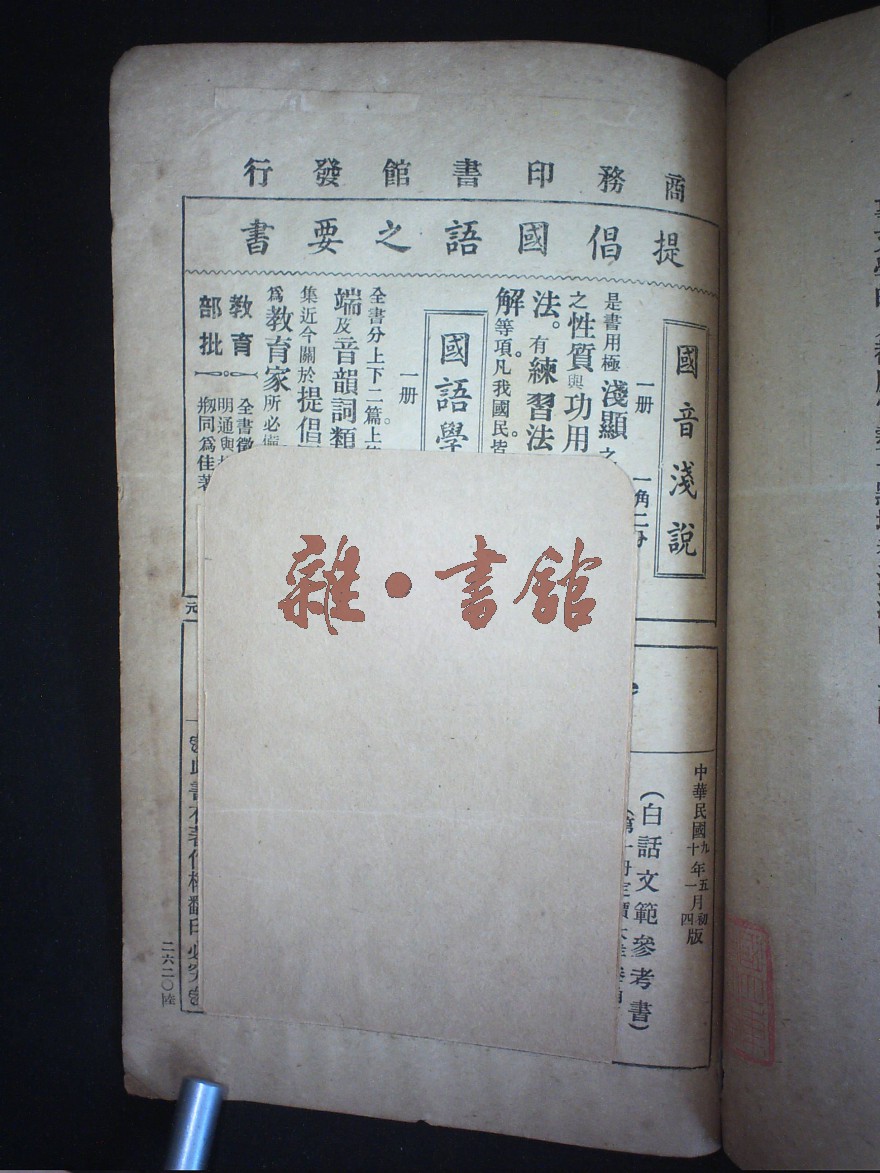 商務印書館發行
提倡國語之要書
國音淺說
一册 一角二分
是書用極淺顯之
之性質與功用
法。有練習法
解等項。凡我國民。皆
國語學
一册
全書分上下二篇。上
端及音韻詞類
集近今關於提倡
爲教育家所必備
教育部批
全書徵
明通與
剏同爲佳著
雜·書館
中華民國九年五月初版
十一年一月四版
(白話文範參考書)
此書有著作權翻印必究
二六二〇陸